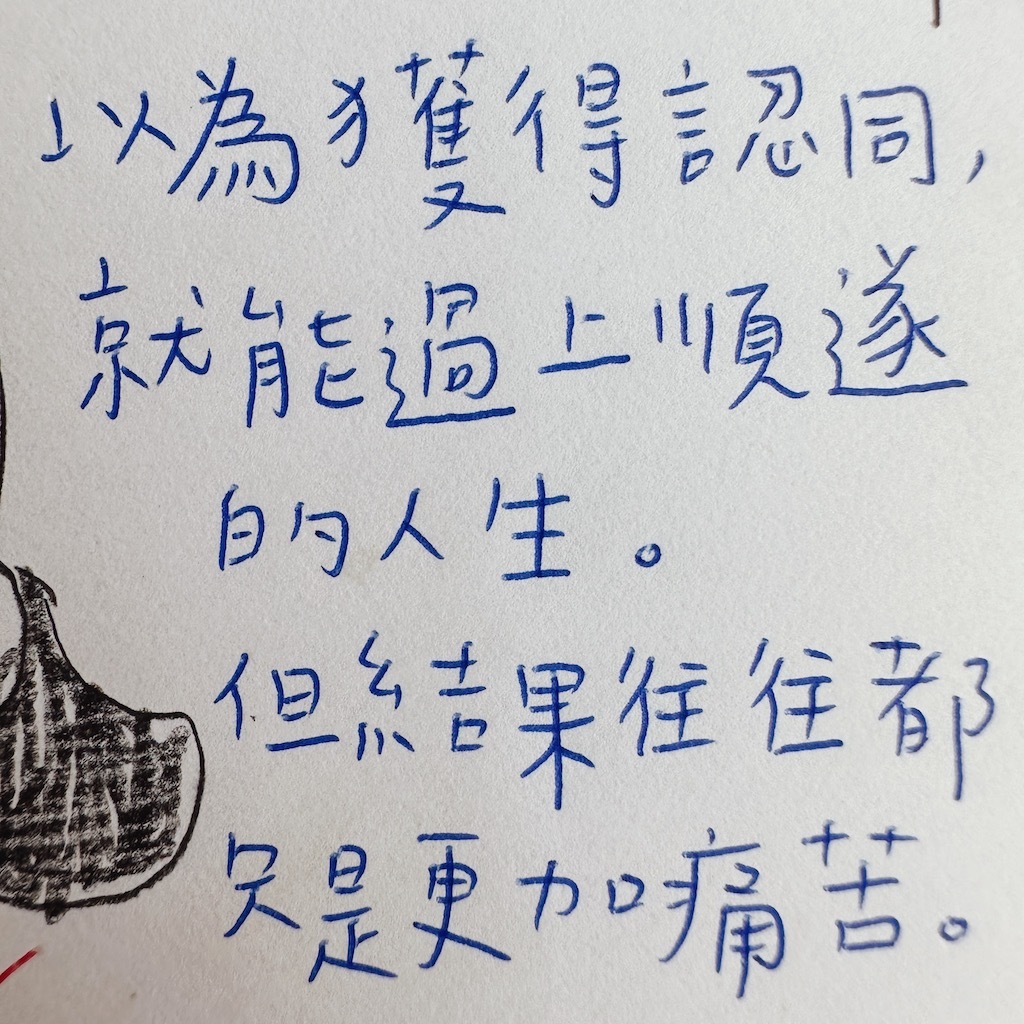 以為獲得認同,
就能過上順遂
的人生。
但結果往往都
只是更加痛苦。